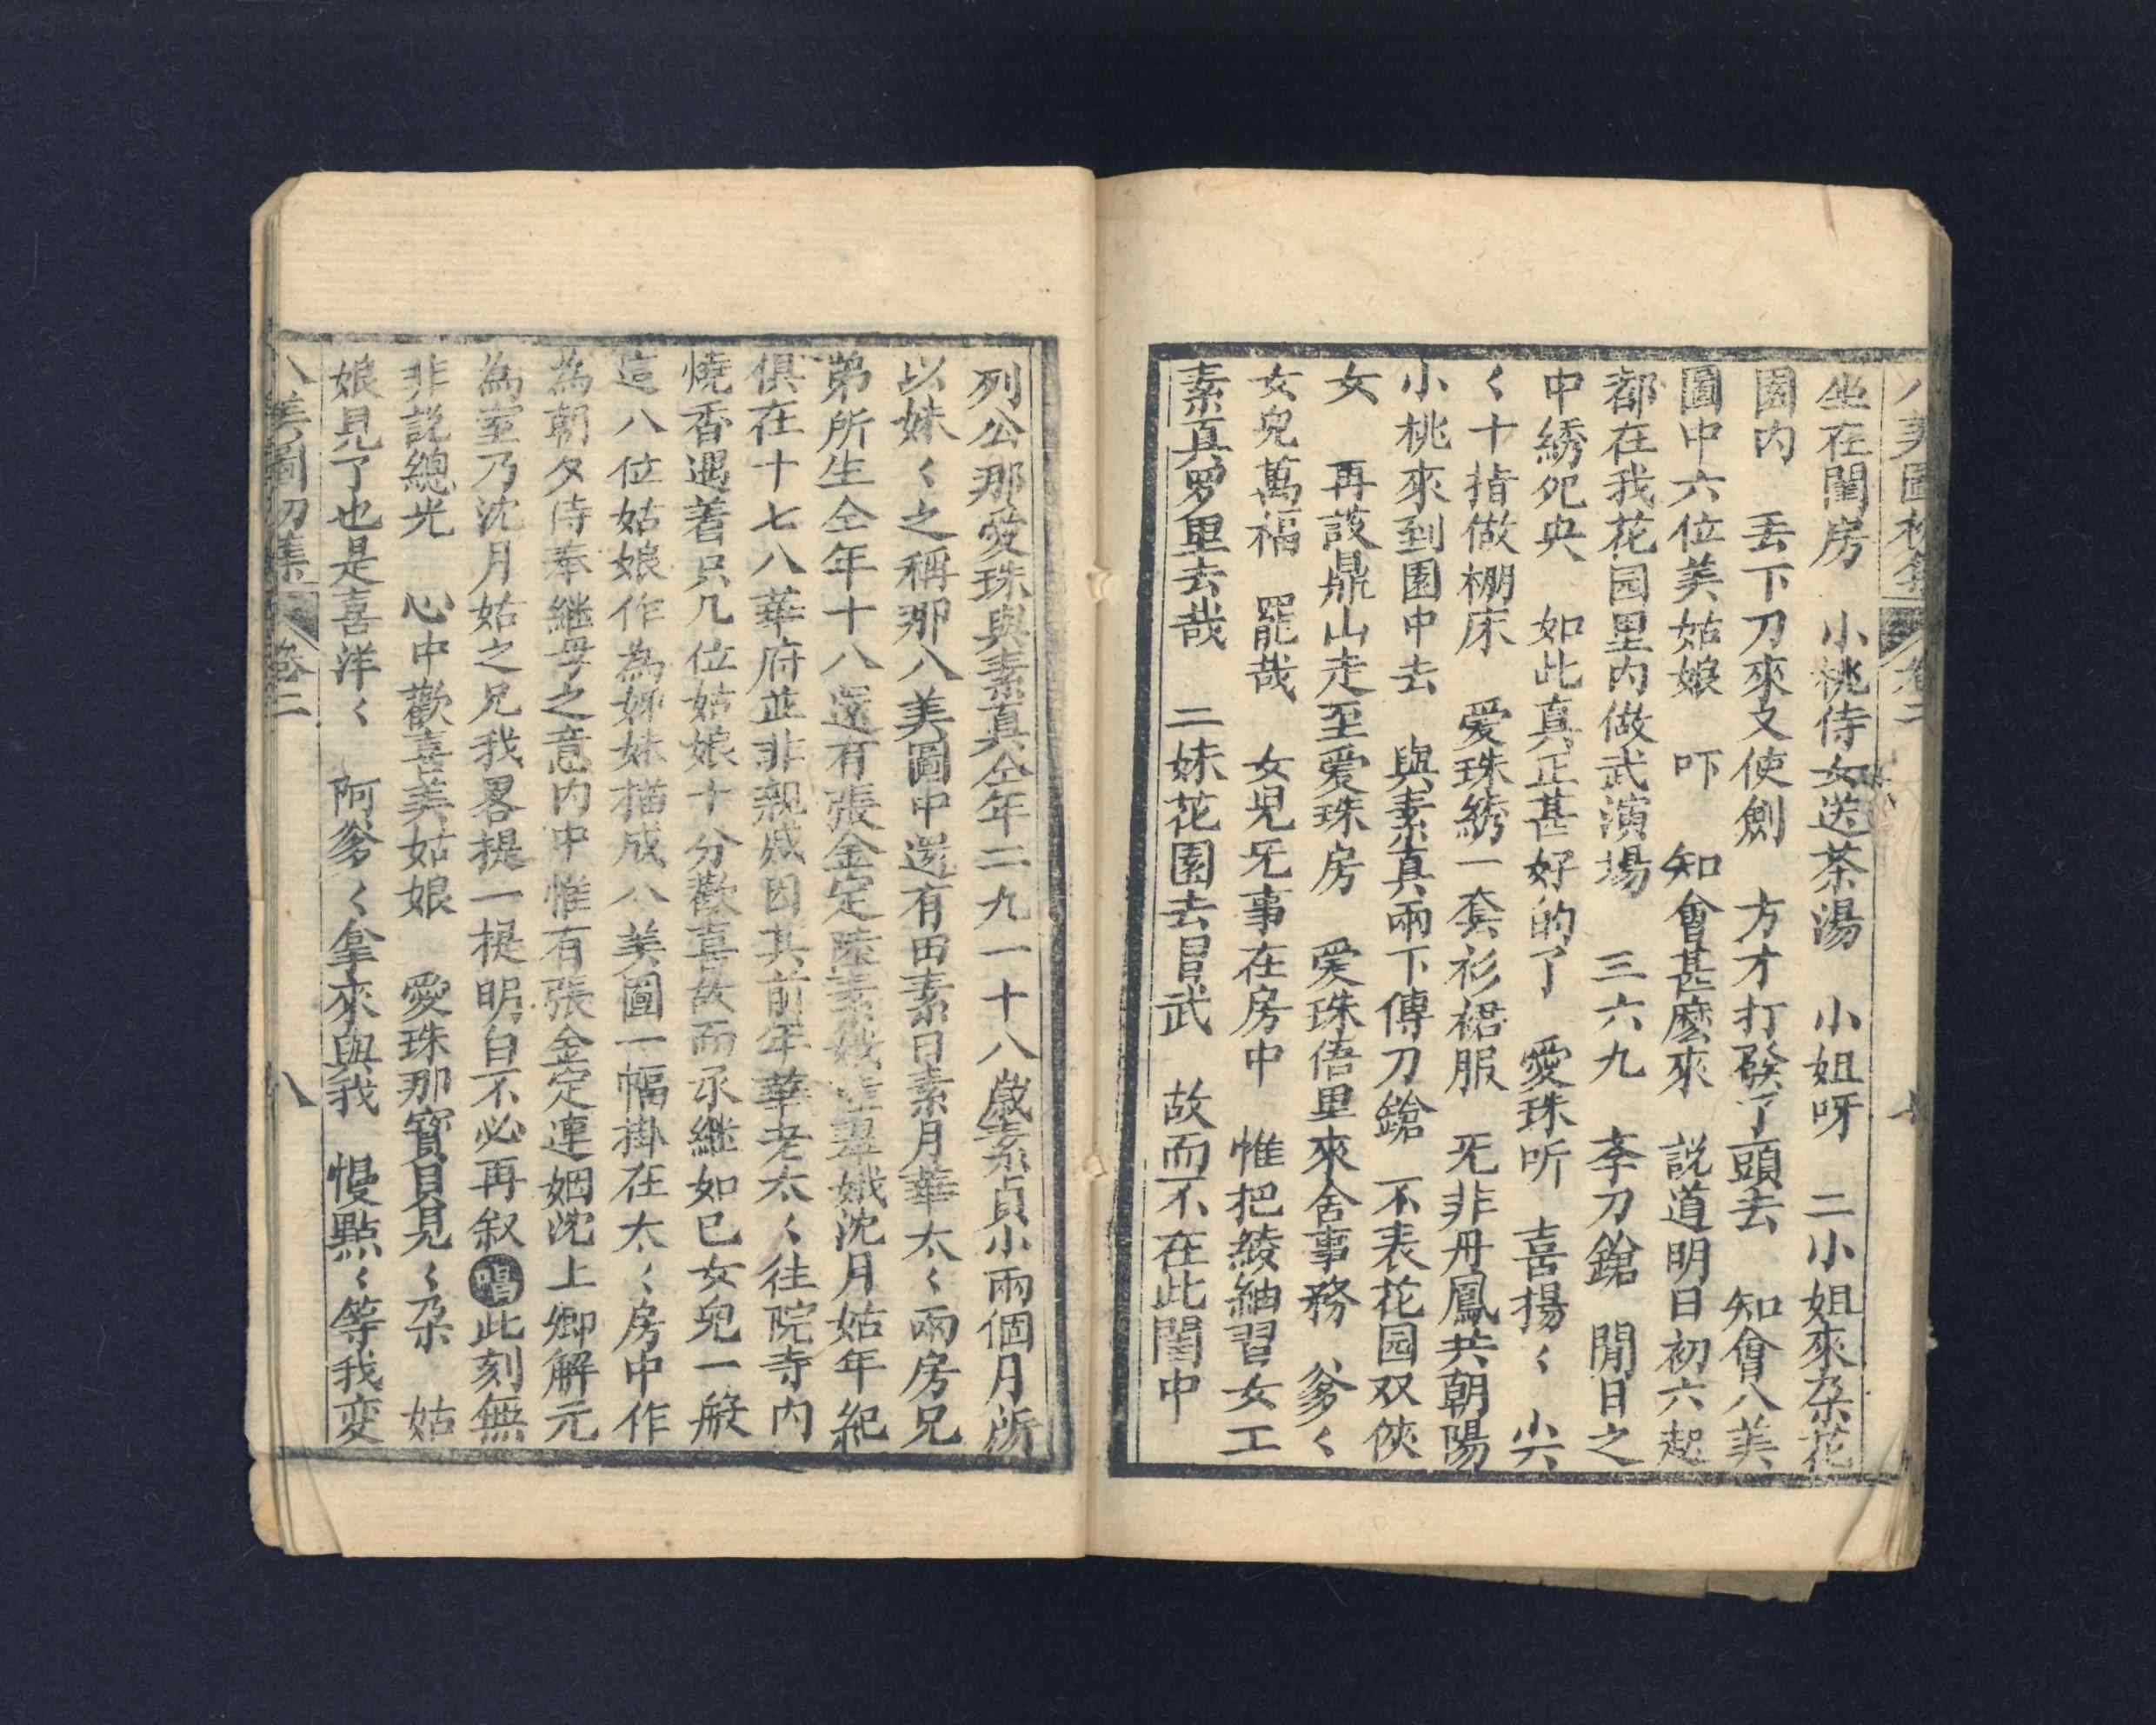 八美圖初集 卷二 七
坐在閨房 小桃侍女送茶湯 小姐呀 二小姐來朶花
園内 丢下刀來又使劍 方才打發了頭去 知會八美
圖中六位美姑娘 吓 知會甚麽來 説道明日初六起
都在我花园里内做武演場 三六九 李刀鎗 閒日之
中綉死央 如此真正甚好的了 愛珠听 喜揚〱 尖
〱十指做棚床 爱珠綉一套衫裙服 旡非丹鳳共朝陽
小桃來到園中去 與素真兩下傳刀鎗 不表花园双俠
女 再談鼎山走至爱珠房 爱珠俉里來舍事務 爹〱
女兒萬福 罷哉 女児旡事在房中 惟把綾紬習女工
素真罗里去哉 二妹花園去習武 故而不在此閨中
列公那愛珠與素真仝年二九一十八歲素貞小兩個月所
以妹〱之稱那八美圖中還有田素日素月華太〱兩房兄
弟所生仝年十八還有張金定陸素娥翠娥沈月姑年紀
俱在十七八華府並非親戚因其前年華老太〱往院寺内
燒香遇着只几位姑娘十分歡喜故而承繼如已女兒一般
這八位姑娘作為姊妹描成八美圖一幅掛在太〱房中作
為朝夕侍奉継母之意内中惟有張金定連姻沈上卿解元
為室乃沈月姑之兄我畧提一提明白不必再叙唱此刻無
非説總光 心中歡喜美姑娘 愛珠那寳貝見〱朶 姑
娘見了也是喜洋〱 阿爹〱拿來與我 慢點〱等我変
八美圖初集 卷二 八